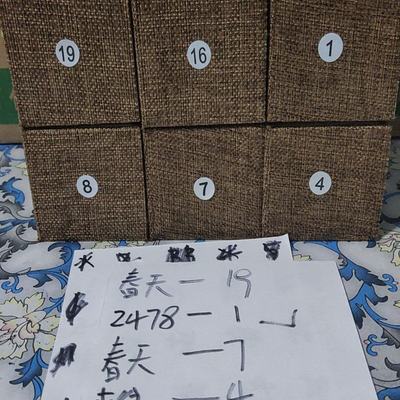 19 16 1
8 7 4
春天一19
2478一1
春天一7
一4